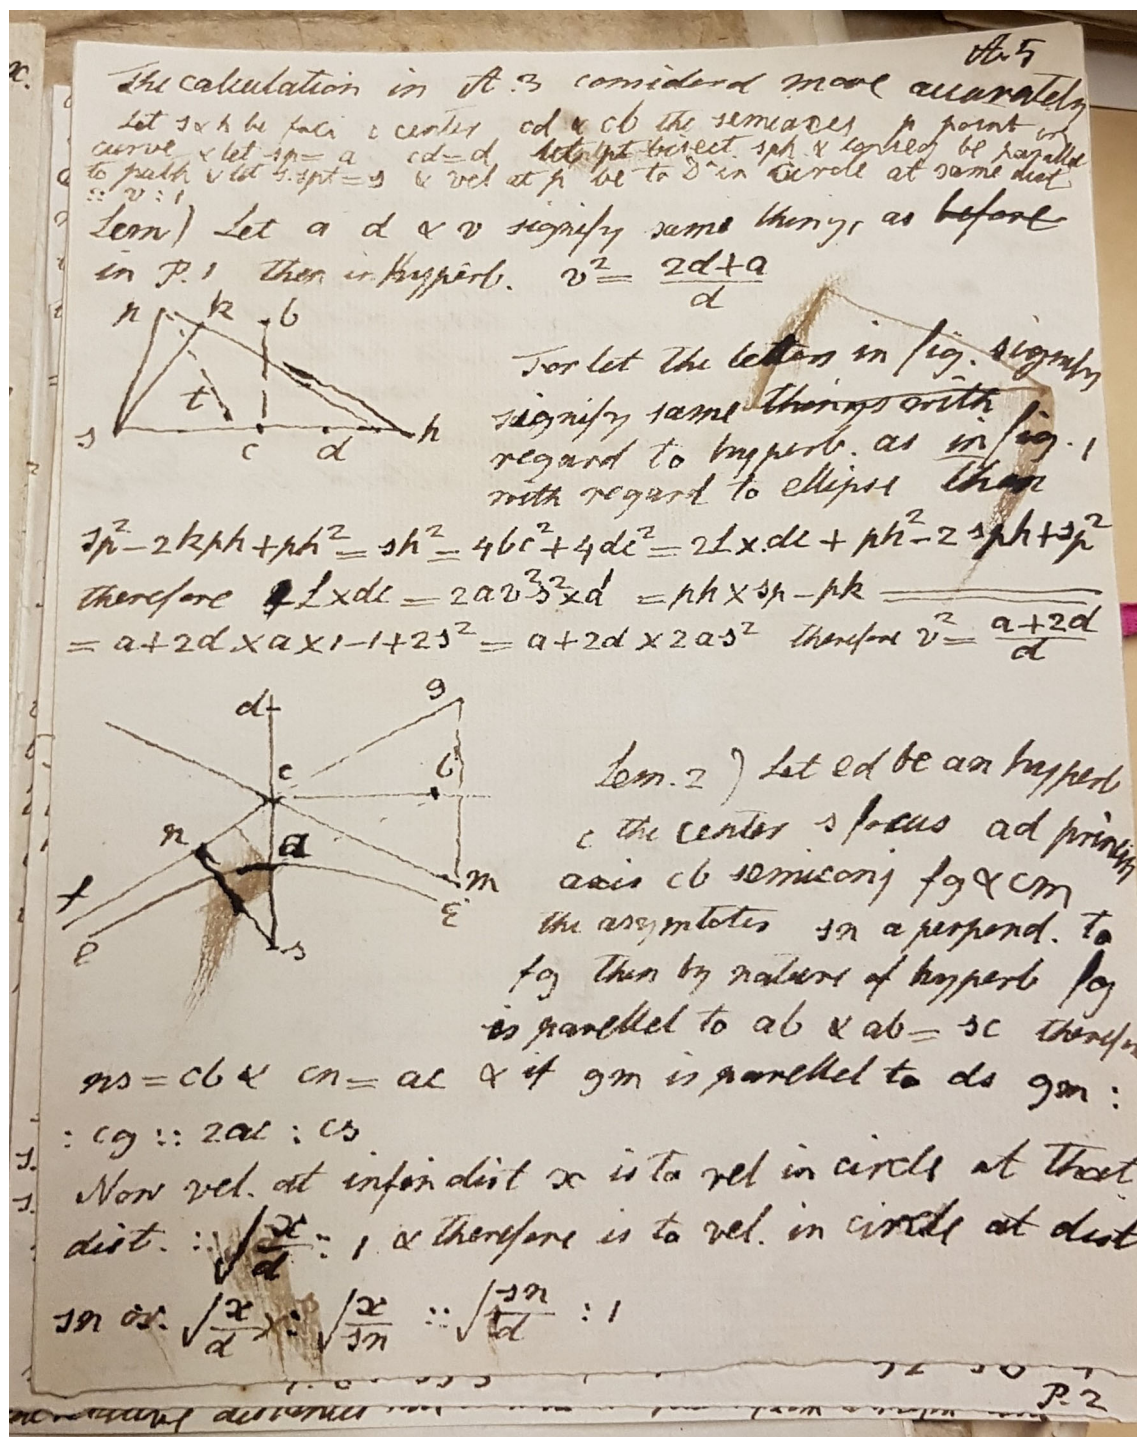 A.5
The calculation in A.3 considerd more accurately
Let s & h be foci c center cd & cb the semiaxes p point in
curve & let sp = a cd = d let pt bisect sph & conseq be parallel
to path & let s.spt = s & vel at p be to D° in circle at same dist
:: v : 1
Lem) Let a d & v signify same things as before
in P.1 then in hyperb. v² = 2d+a / d
n k b
t
s c d h
For let the letters in fig. signify
signify same things with
regard to hyperb. as in fig. 1
with regard to ellipse then
sp² - 2kph + ph² = sh² = 4bc² + 4dc² = 2L x dc + ph² - 2sph + sp²
therefore L x dc = 2av²s² x d = ph x sp - pk
= a + 2d x a x 1 - 1 + 2s² = a + 2d x 2as² therefore v² = a+2d / d
d g
c b
n a
f m
e ε
s
Lem. 2) Let ed be an hyperb
c the center s focus ad princip
axis cb semiconj fg & cm
the asymtotes sn a perpend. to
fg then by nature of hyperb fg
is parellel to ab & ab = sc therefore
ns = cb & cn = ac & if gm is parellel to ds gm :
: cg :: 2ac : cs
Now vel. at infin dist x is to vel in circle at that
dist. :: √x/d : 1 & therefore is to vel. in circle at dist
sn as √x/d : √x/sn :: √sn/d : 1
P.2